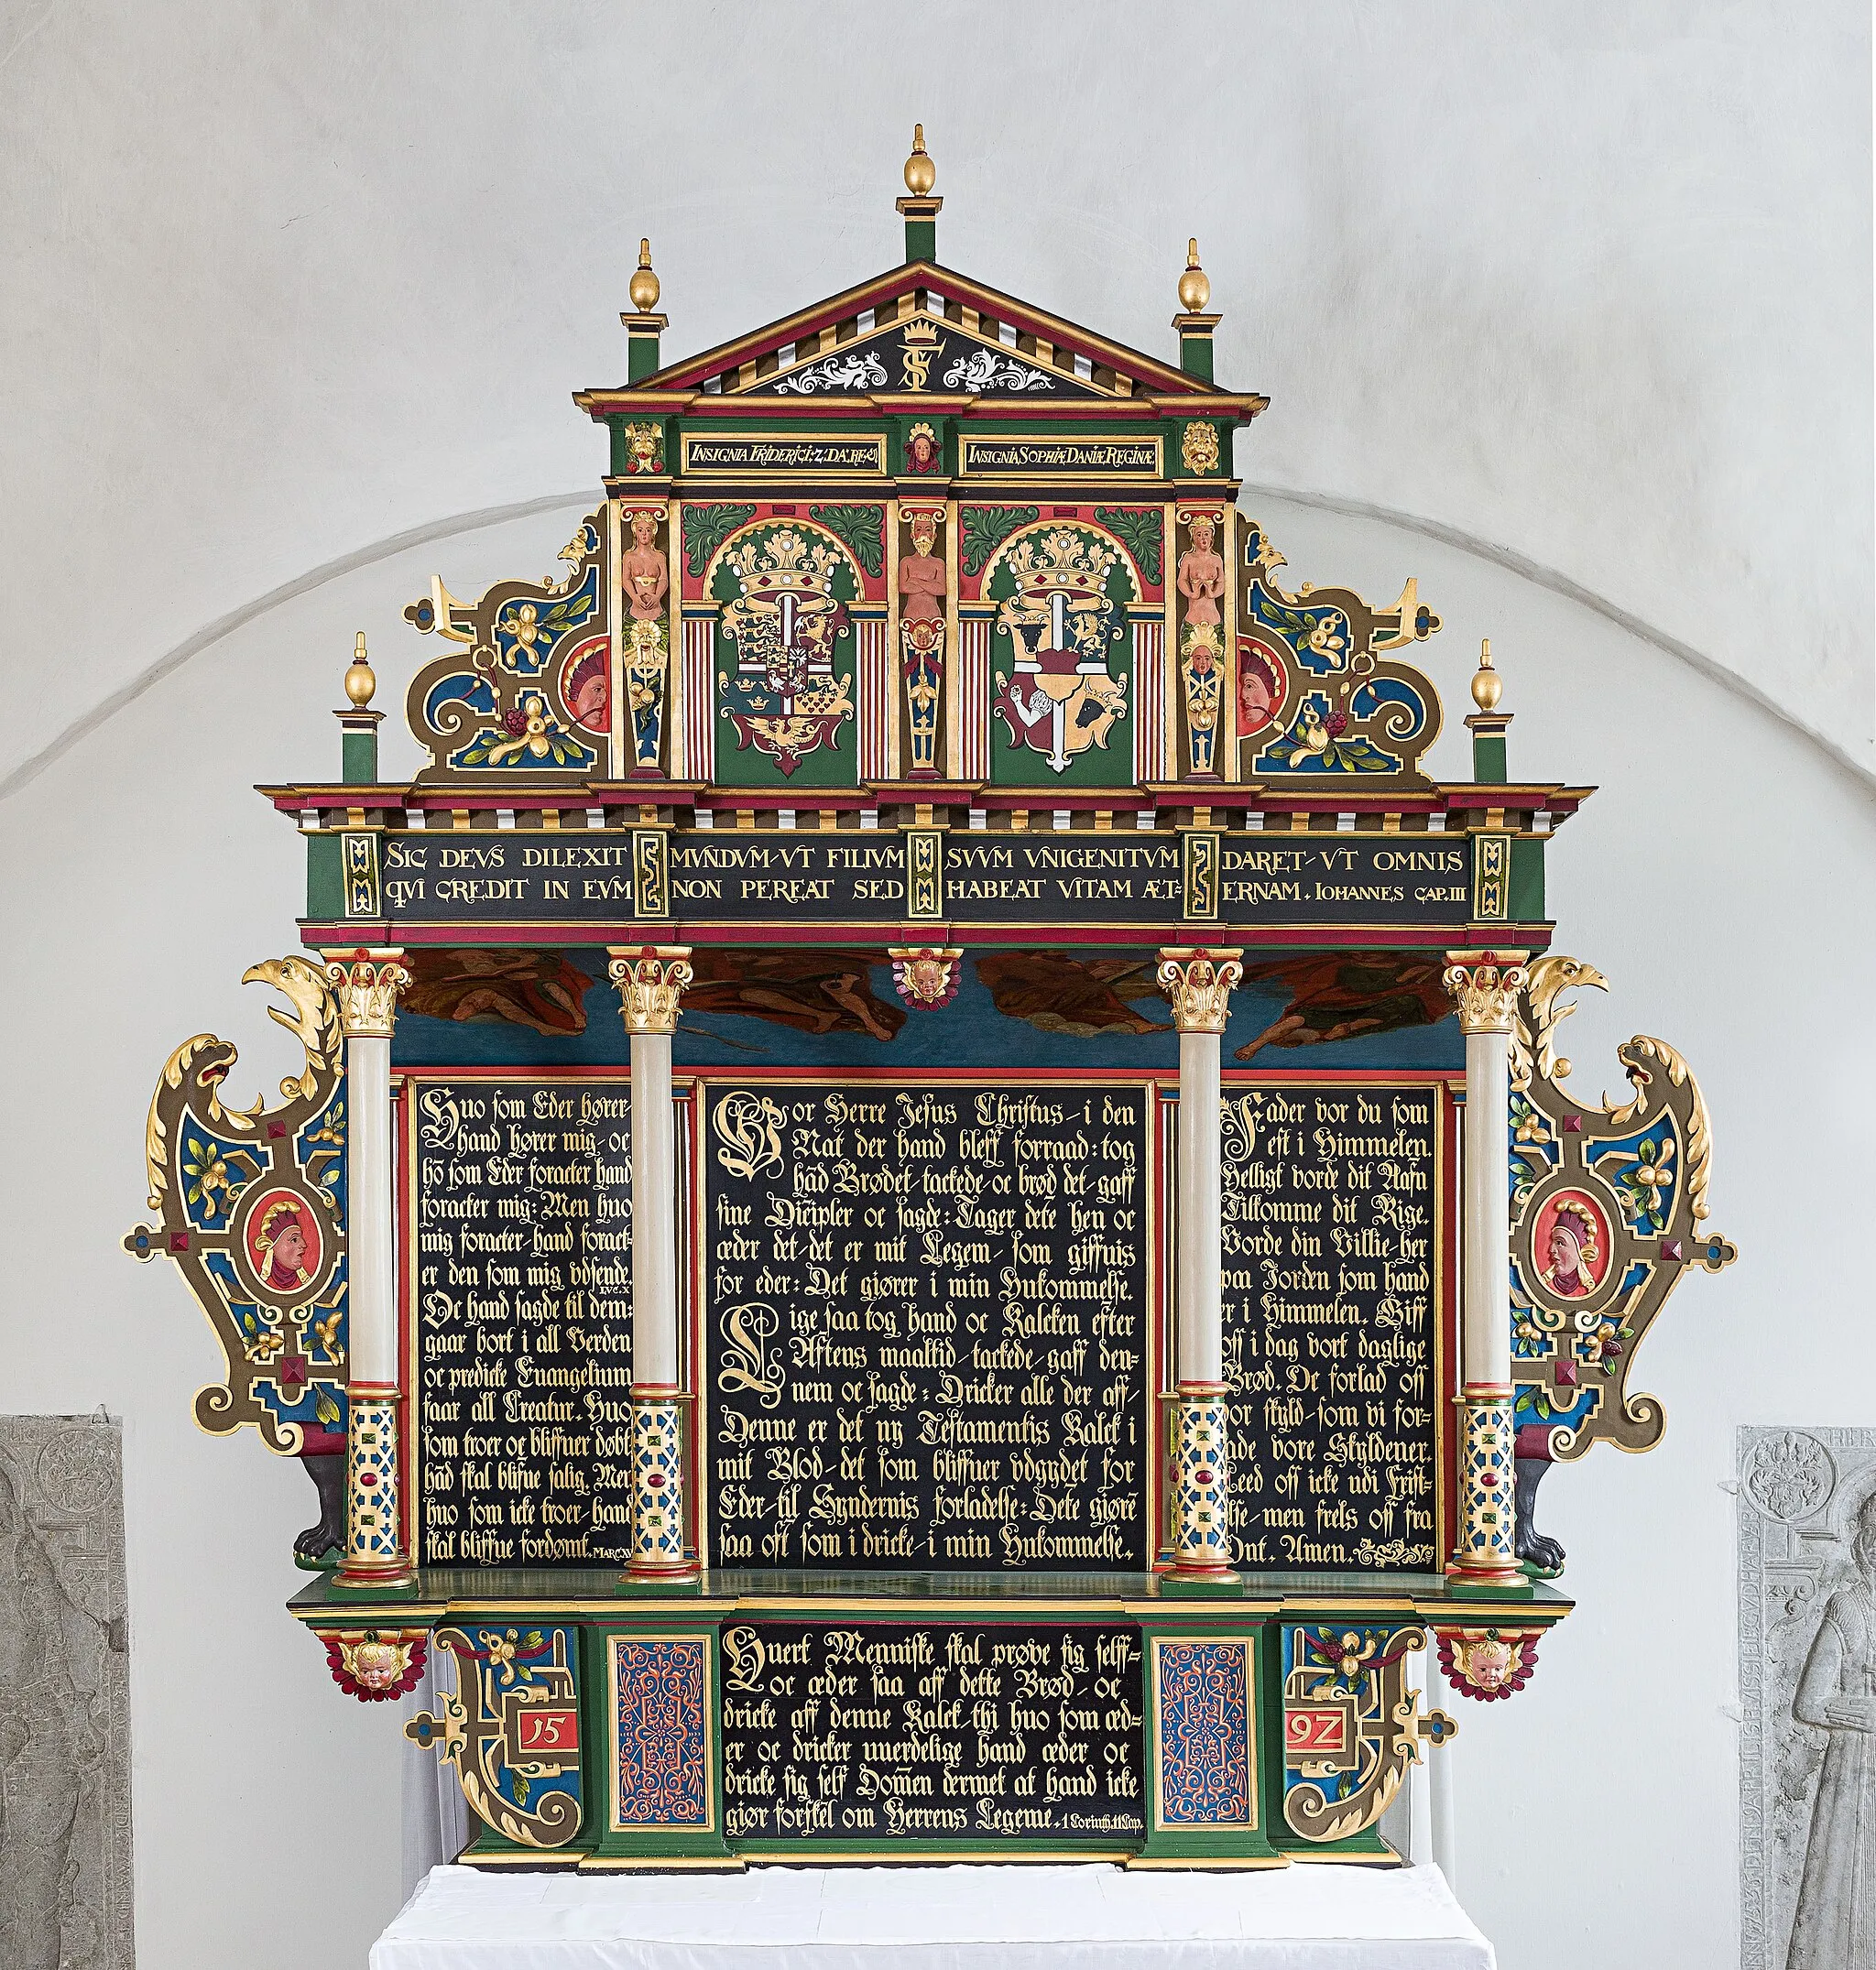 FS
INSIGNIA FRIDERICI: 2: DA: RE:
INSIGNIA SOPHIÆ DANIÆ REGINÆ
SIC DEVS DILEXIT MVNDVM-VT FILIVM SVVM VNIGENITVM DARET-VT OMNIS
QVI CREDIT IN EVM NON PEREAT SED HABEAT VITAM ÆT= ERNAM. IOHANNES CAP. III
Huo som Eder hører-
hand hører mig-oc
hō som Eder foracter hand
foracter mig: Men huo
mig foracter-hand foract=
er den som mig vdsende.
LVC.X
Oc hand sagde til dem:
gaar bort i all Verden
oc predicke Euangelium
faar all Creatur. Huo
som troer oc bliffuer døbt
hād skal blifue salig. Men
huo som icke troer-hand
skal bliffue fordømt. MARC.XV
Vor Herre Jesus Christus-i den
Nat der hand bleff forraad: tog
hād Brødet-tackede-oc brød det-gaff
sine Discipler oc sagde: Tager dete hen oc
æder det-det er mit Legem-som giffuis
for eder: Det giører i min Hukommelse.
Lige saa tog hand oc Kalcken efter
Aftens maaltid-tackede-gaff den=
nem oc sagde: Dricker alle der aff-
Denne er det ny Testamentis Kalck i
mit Blod-det som bliffuer vdgydet for
Eder-til Syndernis forladelse: Dete giørē
saa oft som i dricke-i min Hukommelse.
Fader vor du som
est i Himmelen.
Helligt vorde dit Nafn
Tilkomme dit Rige.
Vorde din Villie-her
paa Jorden som hand
er i Himmelen. Giff
oss i dag vort daglige
Brød. Oc forlad oss
vor skyld-som vi for=
lade vore Skyldener.
Leed oss icke udi Frist=
else-men frels oss fra
Ont. Amen.
Huert Menniske skal prøve sig selff=
oc æder saa aff dette Brød-oc
dricke aff denne Kalck-thi huo som æd=
er oc dricker uuerdelige hand æder oc
dricke sig self Domen dermet at hand icke
giør forskel om Herrens Legeme. 1 Corinth. 11 Cap.
15 92